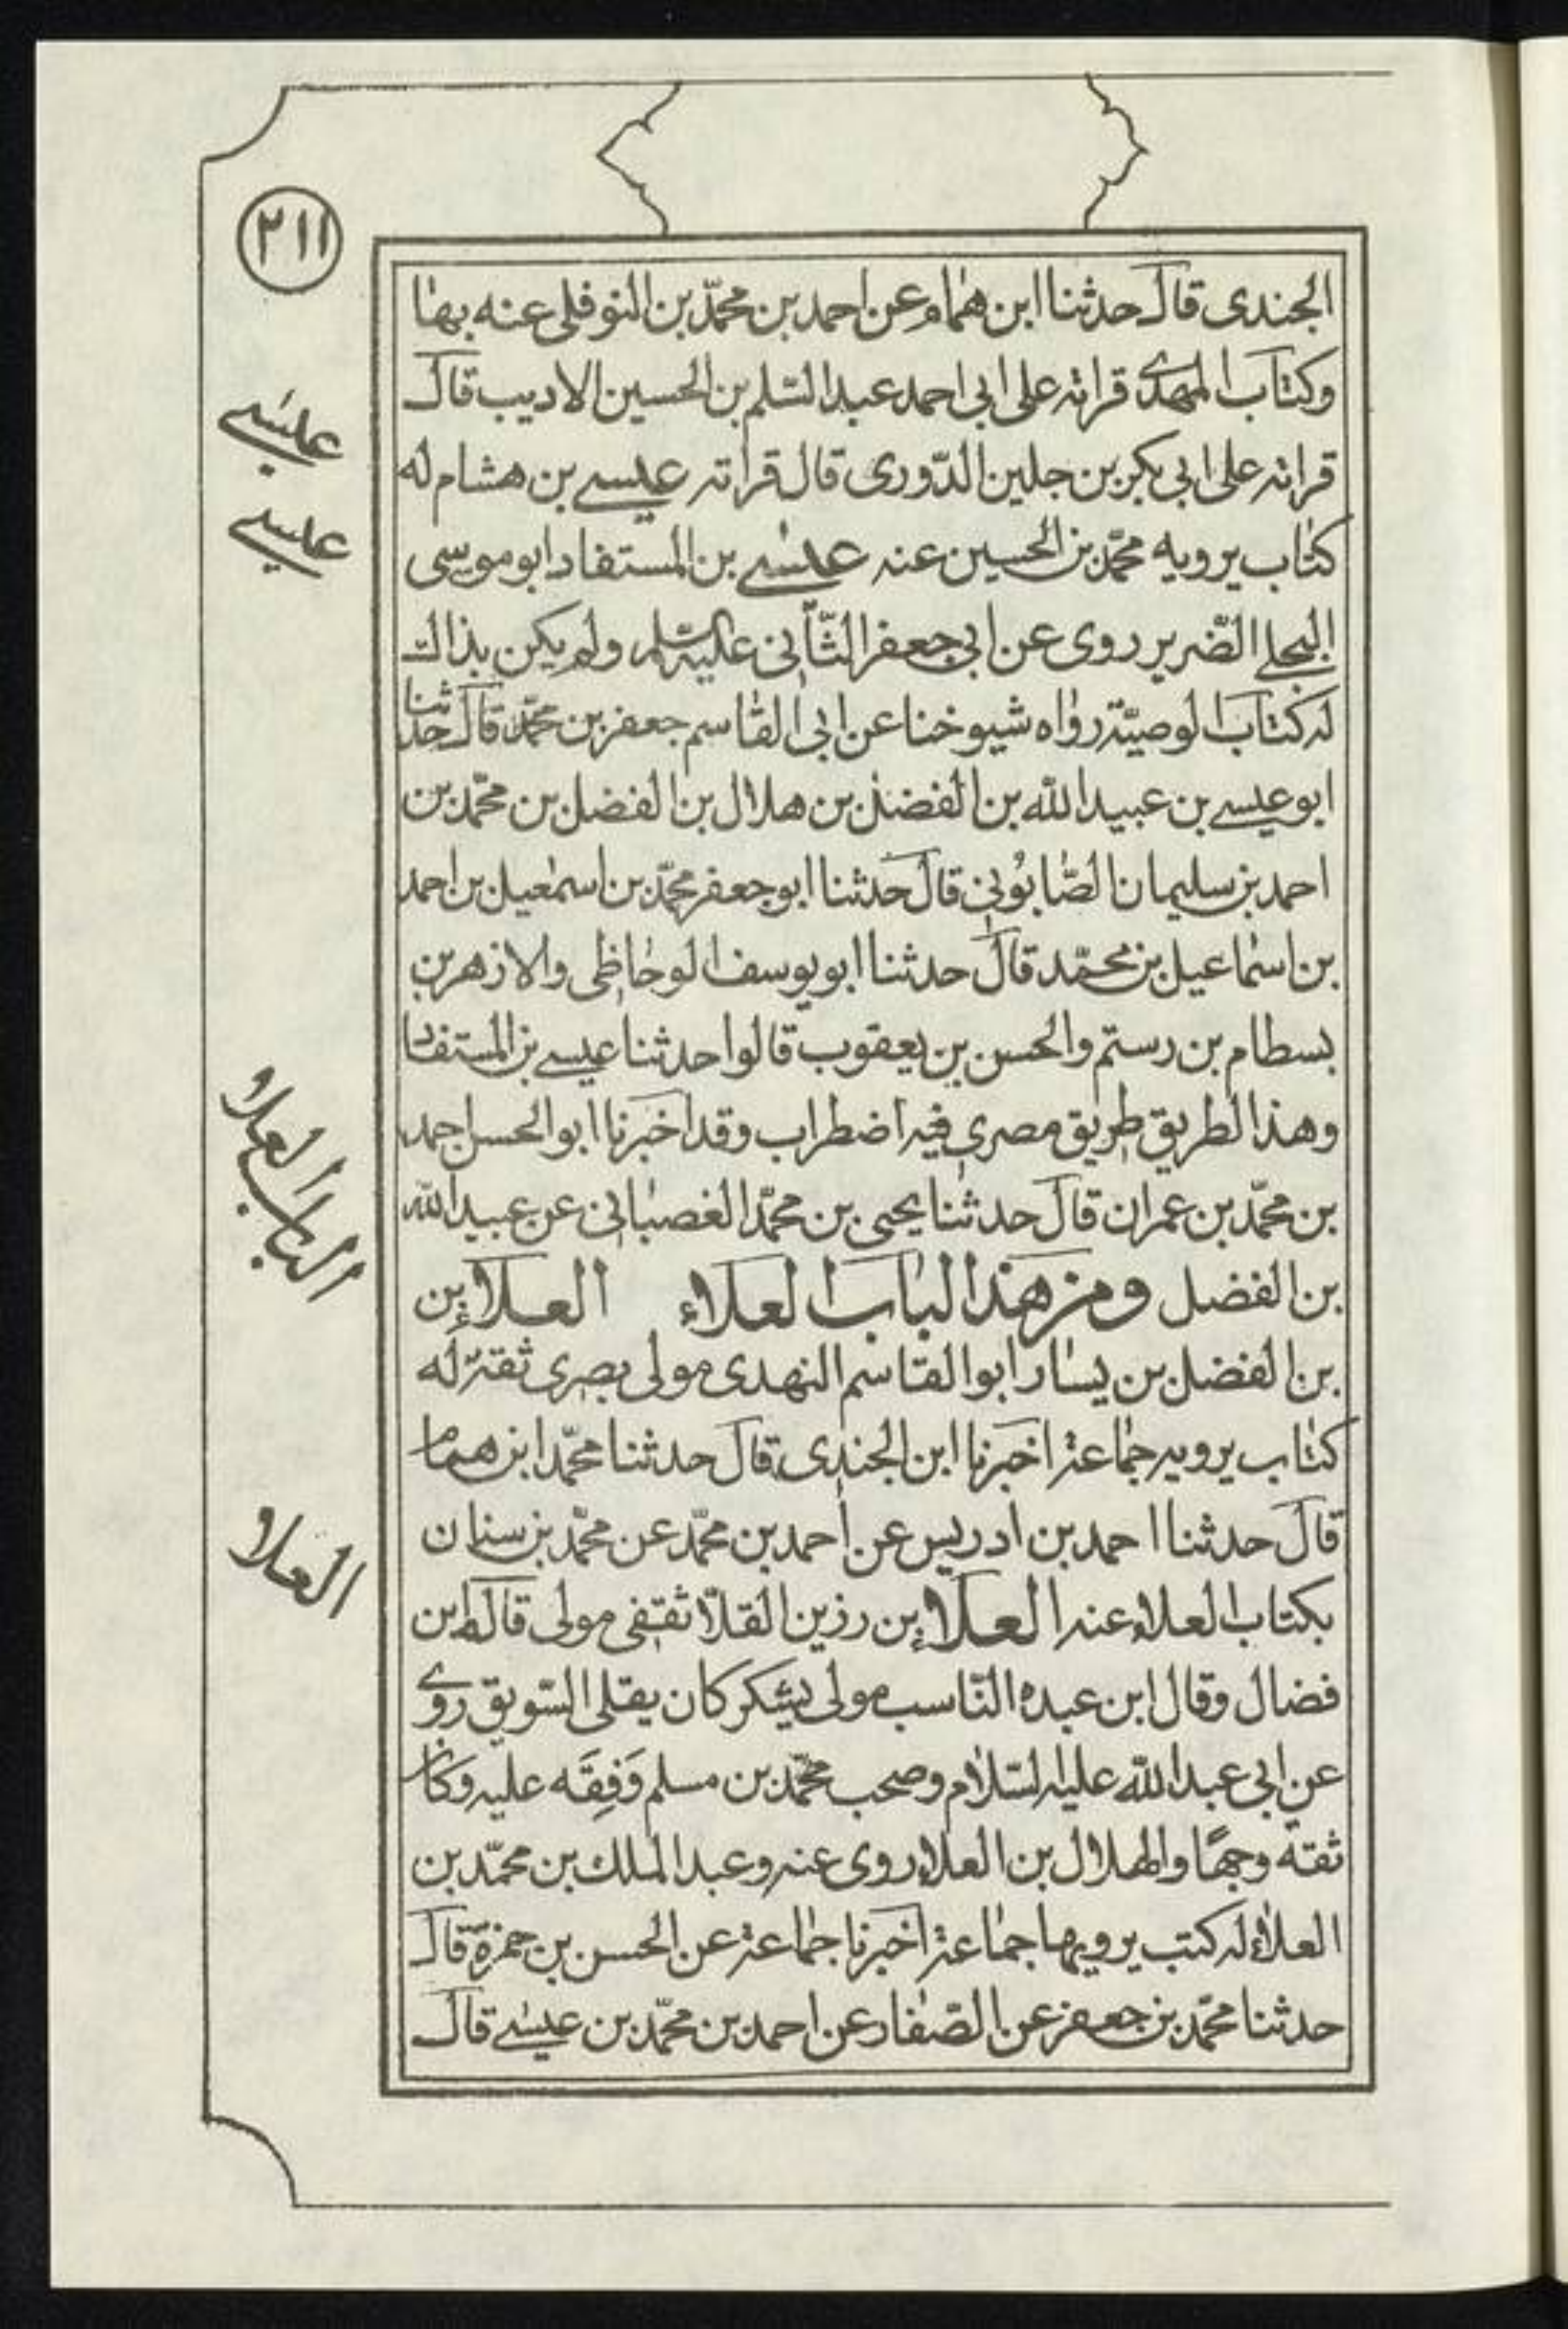 ٢١١
الجندى قال حدثنا ابن همام عن احمد بن محمّد بن النوفلى عنه بها
وكتاب المهدى قراته على ابى احمد عبد السّلم بن الحسين الاديب قال
قراته على ابى بكر بن جلين الدّورى قال قراته عيسى بن هشام له
كتاب يرويه محمّد بن الحسين عنه عيسى بن المستفاد ابو موسى
البجلى الضّرير روى عن ابى جعفر الثّانى عليه السّلم ولم يكن بذاك
له كتاب الوصيّة رواه شيوخنا عن ابى القاسم جعفر بن محمّد قال حدثنا
ابو عيسى بن عبيد الله بن الفضل بن هلال بن الفضل بن محمّد بن
احمد بن سليمان الصّابُونى قال حدثنا ابو جعفر محمّد بن اسمعيل بن احمد
بن اسماعيل بن محمّد قال حدثنا ابو يوسف الوحاظى والازهر بن
بسطام بن رستم والحسن بن يعقوب قالوا حدثنا عيسى بن المستفاد
وهذا الطريق طريق مصرى فيه اضطراب وقد اخبرنا ابو الحسن احمد
بن محمّد بن عمران قال حدثنا يحيى بن محمّد الغصبانى عن عبيد الله
بن الفضل ومن هذا الباب العلاء العلاء بن
بن الفضل بن يسار ابو القاسم النهدى مولى بصرى ثقة له
كتاب يرويه جماعة اخبرنا ابن الجندى قال حدثنا محمّد ابن همام
قال حدثنا احمد بن ادريس عن احمد بن محمّد عن محمّد بن سنان
بكتاب العلاء عنه العلاء بن رزين القلّا ثقفى مولى قاله ابن
فضال وقال ابن عبده النّاسب مولى يشكر كان يقلى السّويق روى
عن ابى عبد الله عليه السّلام وصحب محمّد بن مسلم وَفِقَه عليه وكان
ثقة وجهًا والهلال بن العلاء روى عنه وعبد الملك بن محمّد بن
العلاء له كتب يرويها جماعة اخبرنا جماعة عن الحسن بن حمزة قال
حدثنا محمّد بن جعفر عن الصّفار عن احمد بن محمّد بن عيسى قال
عيسى
عيسى
الباب العلاء
العلاء